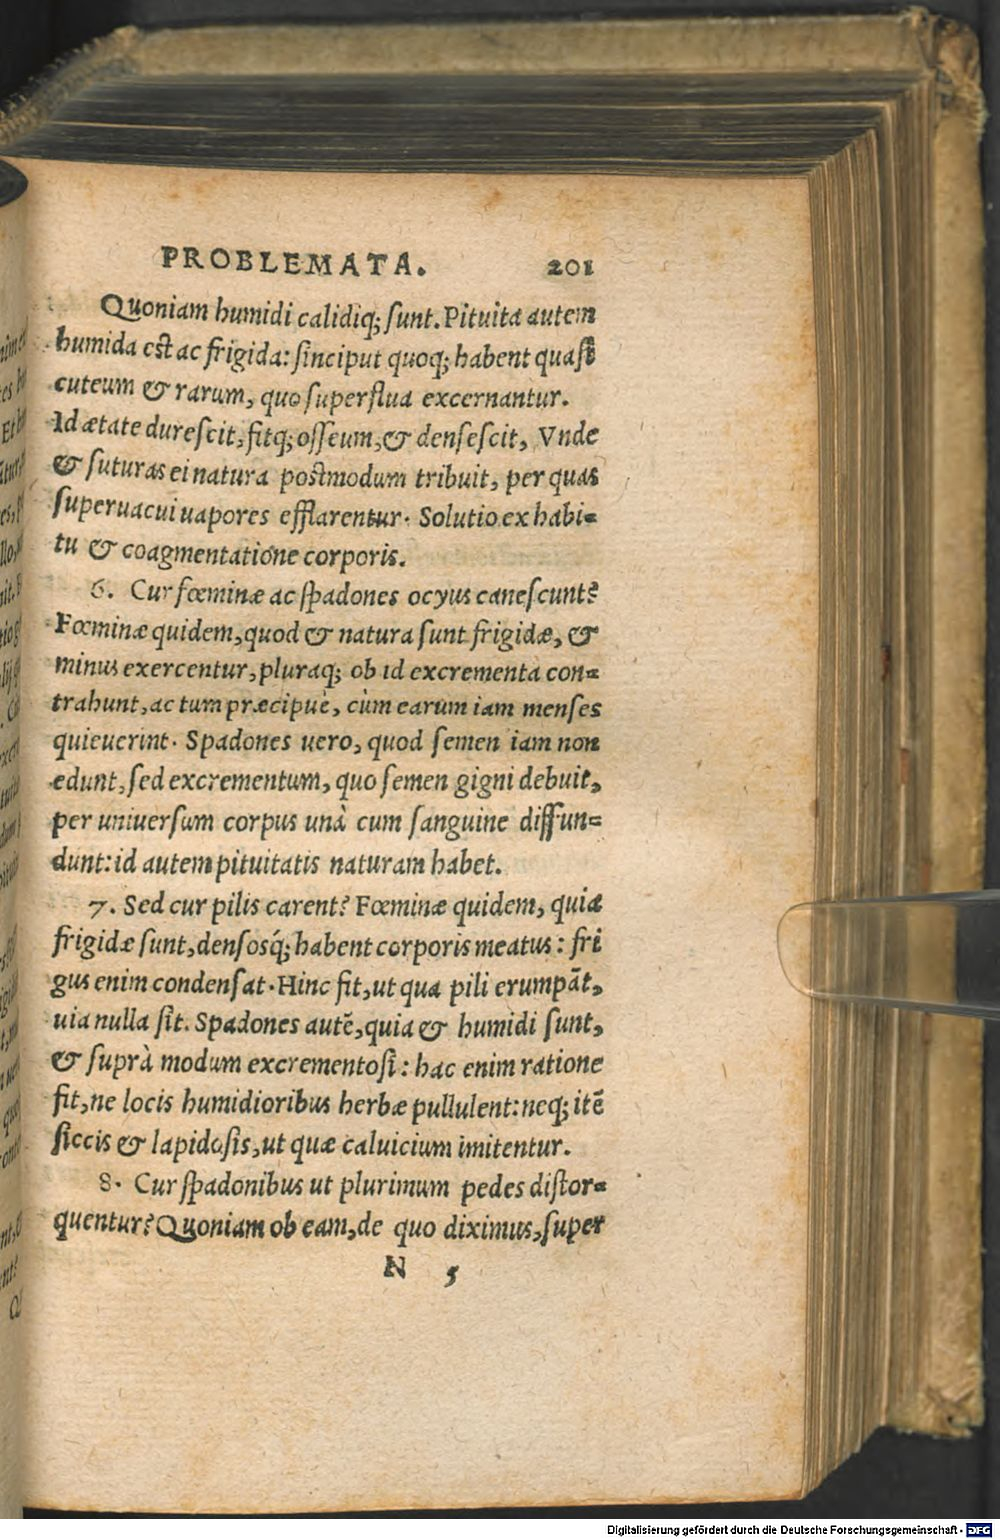 PROBLEMATA. 201
Quoniam humidi calidiq; sunt. Pituita autem
humida est ac frigida: sinciput quoq; habent quasi
cuteum & rarum, quo superflua excernantur.
Id ætate durescit, fitq; osseum, & densescit, Vnde
& suturas ei natura postmodum tribuit, per quas
superuacui uapores efflarentur. Solutio ex habi=
tu & coagmentatione corporis.
6. Cur fœminæ ac spadones ocyus canescunt?
Fœminæ quidem, quod & natura sunt frigidæ, &
minus exercentur, pluraq; ob id excrementa con=
trahunt, ac tum præcipuè, cùm earum iam menses
quieuerint. Spadones uero, quod semen iam non
edunt, sed excrementum, quo semen gigni debuit,
per uniuersum corpus unà cum sanguine diffun=
dunt: id autem pituitatis naturam habet.
7. Sed cur pilis carent? Fœminæ quidem, quia
frigidæ sunt, densosq́; habent corporis meatus: fri
gus enim condensat. Hinc fit, ut qua pili erumpāt,
uia nulla sit. Spadones autē, quia & humidi sunt,
& suprà modum excrementosi: hac enim ratione
fit, ne locis humidioribus herbæ pullulent: neq; itē
siccis & lapidosis, ut quæ caluicium imitentur.
8. Cur spadonibus ut plurimum pedes distor=
quentur? Quoniam ob eam, de quo diximus, super
N 5
Digitalisierung gefördert durch die Deutsche Forschungsgemeinschaft - DFG